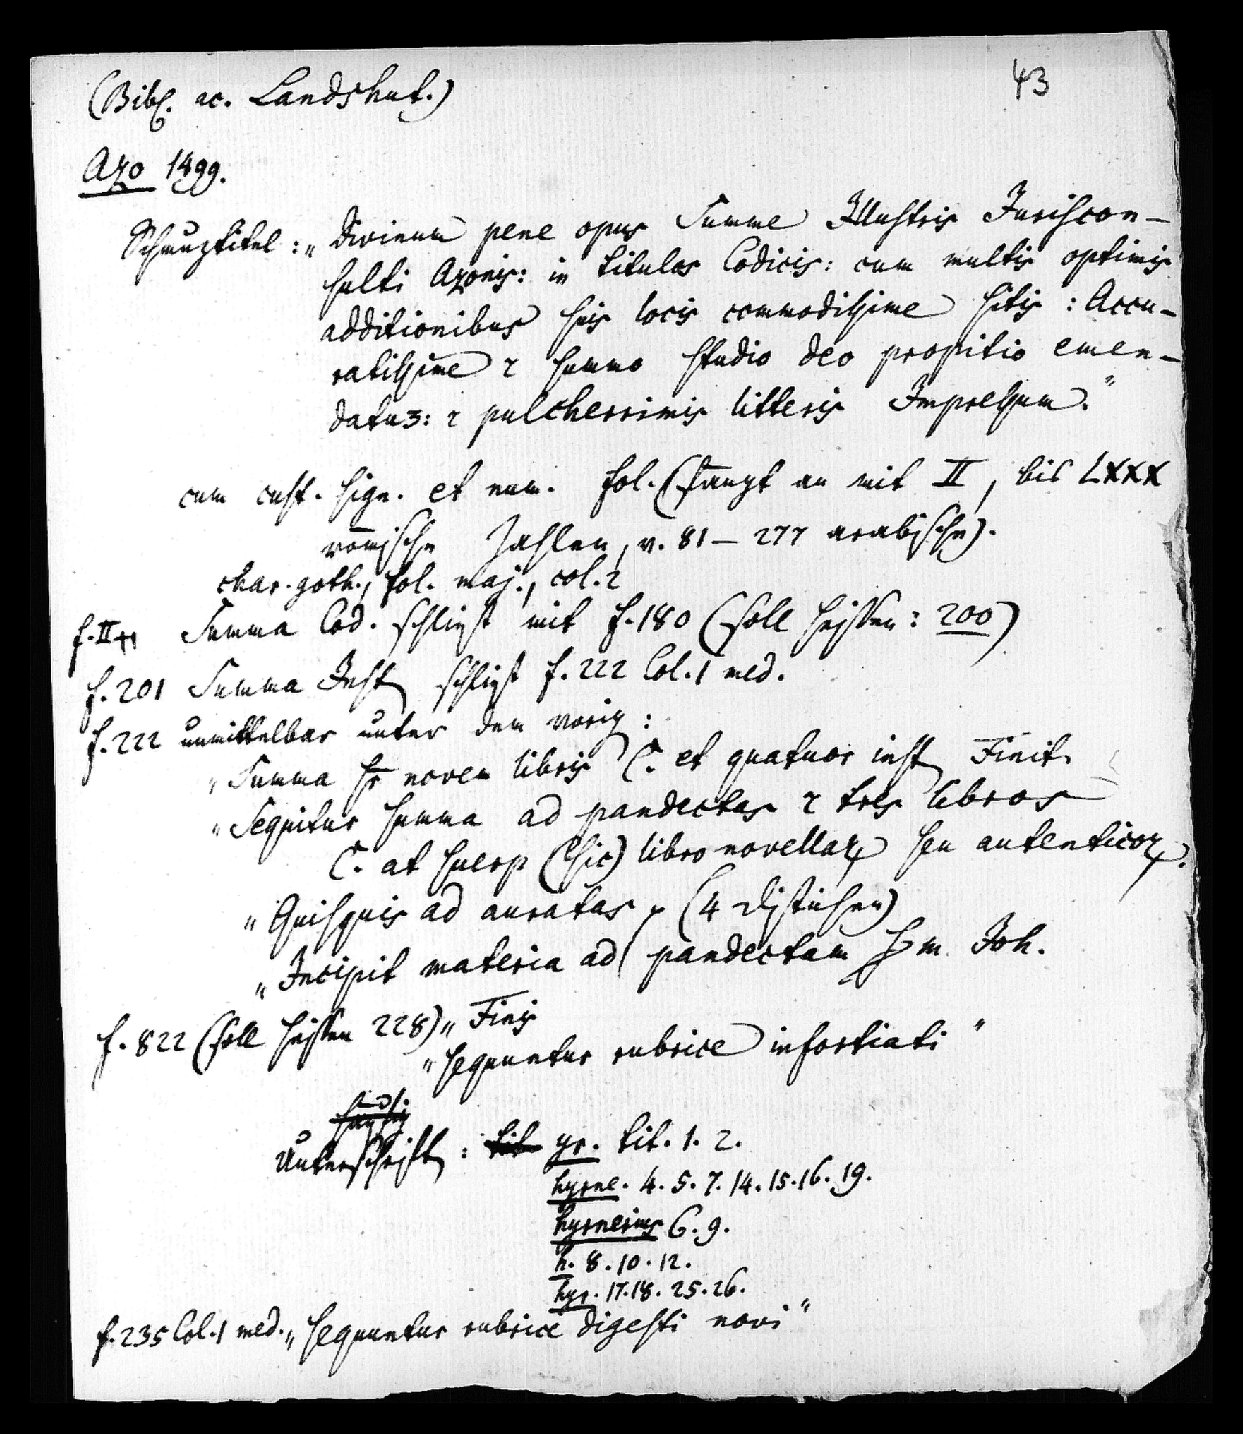 (Bibl. ac. Landshut.)
43
Azo 1499.
Schmuztitel: „Divinum pene opus Summe Illustris Juriscon-
sulti Azonis: in titulos Codicis: cum multis optimis
additionibus suis locis commodissime sitis: Accu-
ratissime ⁊ summo studio deo propitio emen-
datuʒ: ⁊ pulcherrimis litteris Impressum.“
cum cust. sign. et num. fol. (fangt an mit II, bis LXXX
römische Zahlen, v. 81 – 277 arabische).
char. goth., fol. maj., col. 2
f. II Summa Cod. schliest mit f. 180 (soll heissen: 200)
f. 201 Summa Inst. schliest f. 222 Col. 1 med.
f. 222 unmittelbar unter dem vorig:
„Summa sr novem libris C. et quatuor inst. Finit.
„Sequitur summa ad pandectas ⁊ tres libros
C. at suerp (sic) libro novellaꝝ seu autenticoꝝ.
„Quisquis ad auratas (4 Distichen)
„Incipit materia ad pandectam sm. Joh.
f. 822 (soll heissen 228) „Finis
„sequuntur rubrice infortiati“
Unterschrift: gr. tit. 1. 2.
hyrne. 4. 5. 7. 14. 15. 16. 19.
hyrnerius 6. 9.
h. 8. 10. 12.
hyr. 17. 18. 25. 26.
f. 235 Col. 1 med. „sequuntur rubrice digesti novi“